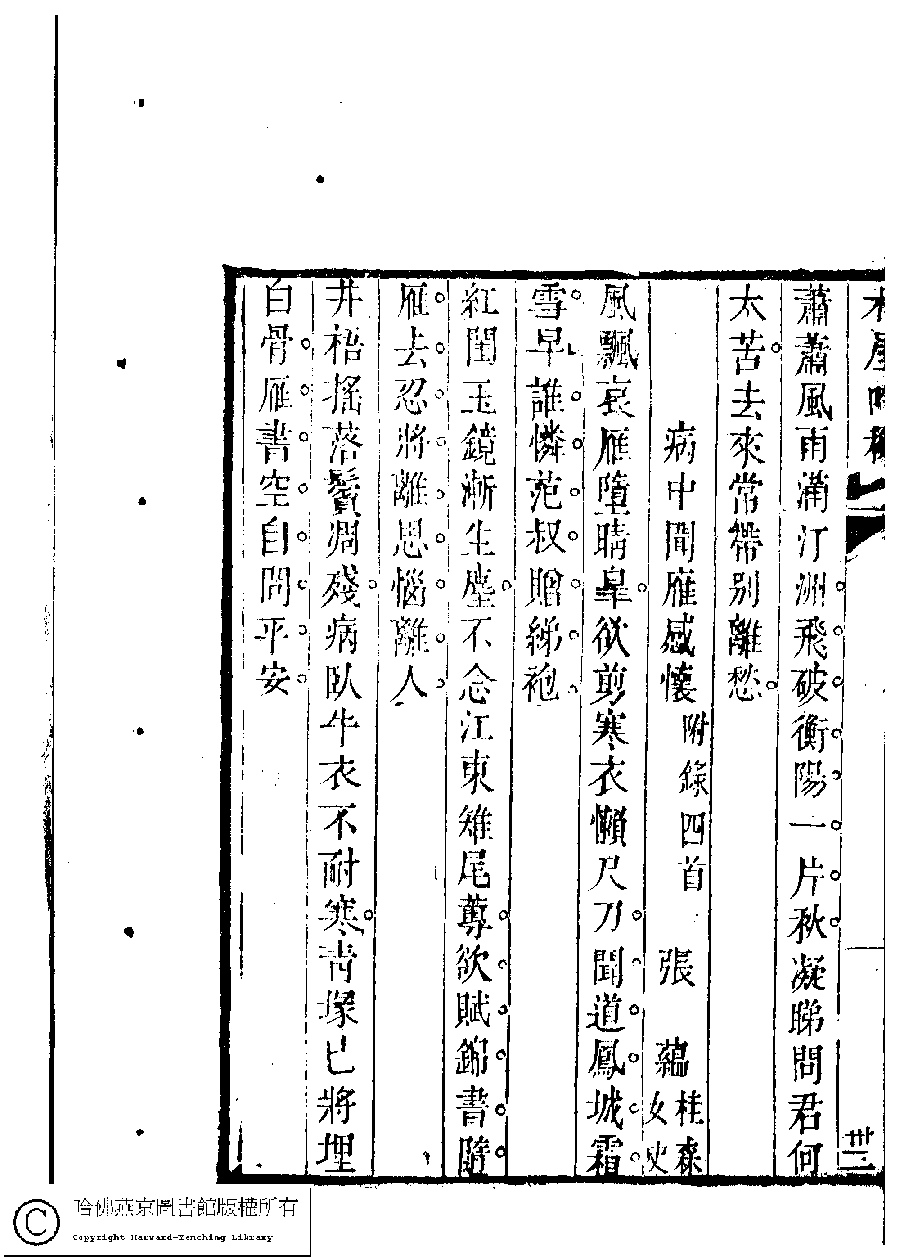 蕭蕭風雨滿汀洲飛破衡陽一片秋凝睇問君何
太苦去來常帶別離愁
病中聞雁感懷附錄四首 張蘊桂森女史
風飄哀雁墮晴皐欲剪寒衣懶尺刀聞道鳳城霜
雪早誰憐范叔贈綈袍
紅閨玉鏡漸生塵不念江東雉尾蓴欲賦錦書隨
雁去忍將離思惱離人
井梧搖落鬢凋殘病臥牛衣不耐寒青塚已將埋
白骨雁書空自問平安
卅三
哈佛燕京圖書館版權所有
Copyright Harvard-Yenching Library